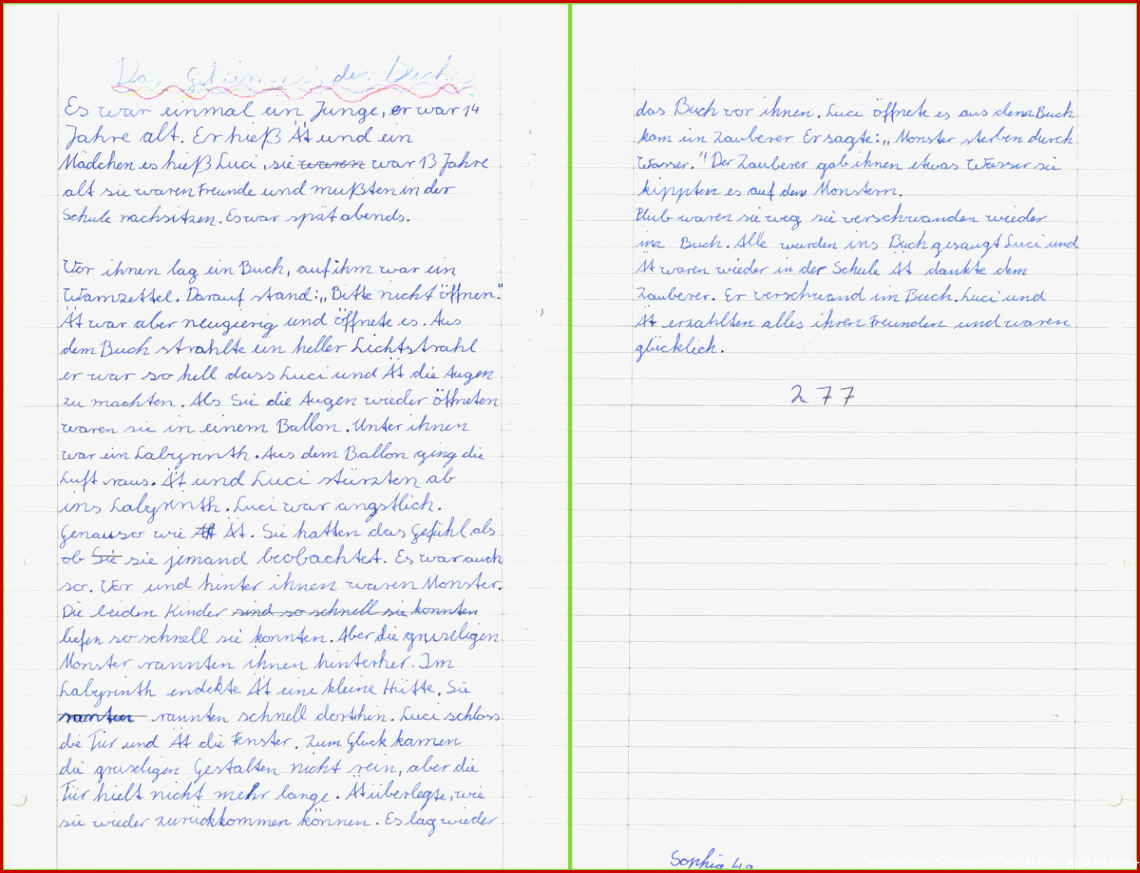 Das Geheimnis des Buches
Es war einmal ein Junge, er war 14
Jahre alt. Er hieß Ät und ein
Mädchen es hieß Luci, sie waren war 13 Jahre
alt sie waren Freunde und mußten in der
Schule nachsitzen. Es war spät abends.
Vor ihnen lag ein Buch, auf ihm war ein
Warnzettel. Darauf stand: „Bitte nicht öffnen."
Ät war aber neugierig und öffnete es. Aus
dem Buch strahlte ein heller Lichtstrahl
er war so hell dass Luci und Ät die Augen
zu machten. Als Sie die Augen wieder öffneten
waren sie in einem Ballon. Unter ihnen
war ein Labyrinth. Aus dem Ballon ging die
Luft raus. Ät und Luci stürzten ab
ins Labyrinth. Luci war angstlich.
Genauso wie Ät. Sie hatten das Gefühl als
ob Sie sie jemand beobachtet. Es war auch
so. Vor und hinter ihnen waren Monster.
Die beiden Kinder sind so schnell sie konnten
liefen so schnell sie konnten. Aber die gruseligen
Monster rannten ihnen hinterher. Im
Labyrinth endekte Ät eine kleine Hütte. Sie
ranten rannten schnell dorthin. Luci schloss
die Tür und Ät die Fenster. Zum Glück kamen
die gruseligen Gestalten nicht rein, aber die
Tür hielt nicht mehr lange. Ät überlegte, wie
sie wieder zurückkommen können. Es lag wieder
das Buch vor ihnen. Luci öffnete es aus dem Buch
kam ein Zauberer Er sagte: „Monster sterben durch
Wasser." Der Zauberer gab ihnen etwas Wasser sie
kippten es auf den Monstern.
Blub waren sie weg sie verschwanden wieder
im Buch. Alle wurden ins Buch gesaugt Luci und
Ät waren wieder in der Schule Ät dankte dem
Zauberer. Er verschwand im Buch. Luci und
Ät erzählten alles ihren Freunden und waren
glücklich.
277
Sophia 4a